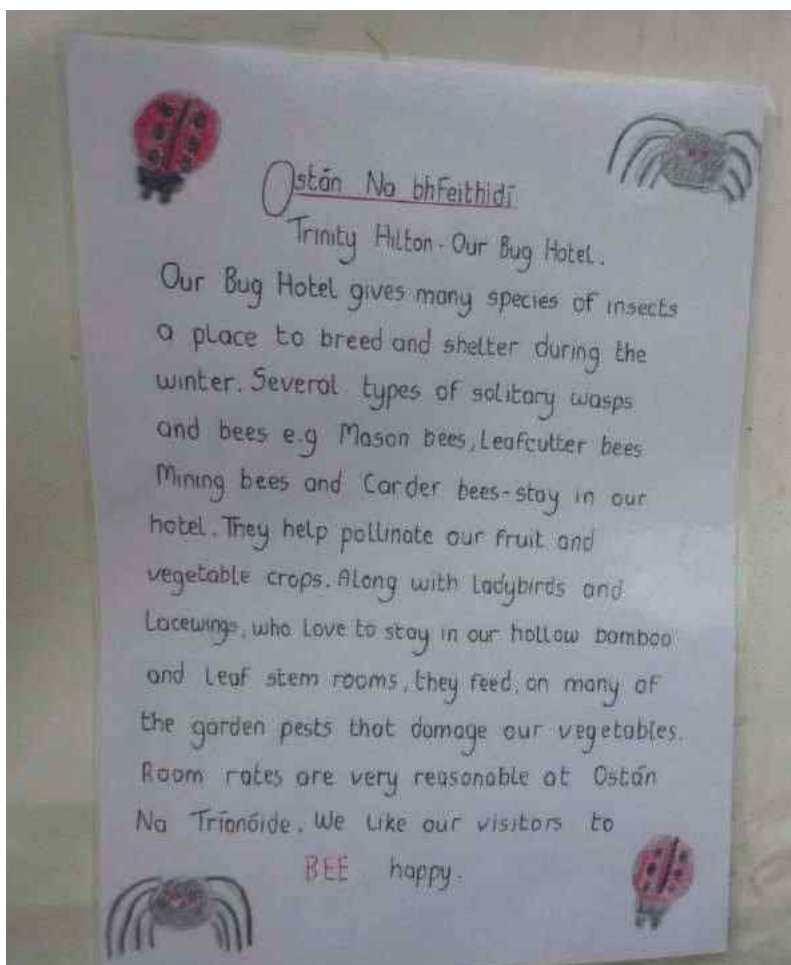 Ostán Na bhFeithidí
Trinity Hilton - Our Bug Hotel.
Our Bug Hotel gives many species of insects
a place to breed and shelter during the
winter. Several types of solitary wasps
and bees e.g Mason bees, Leafcutter bees
Mining bees and Carder bees - stay in our
hotel. They help pollinate our fruit and
vegetable crops. Along with Ladybirds and
Lacewings, who Love to stay in our hollow bamboo
and Leaf stem rooms, they feed, on many of
the garden pests that damage our vegetables.
Room rates are very reasonable at Ostán
Na Tríonóide. We Like our visitors to
BEE happy.